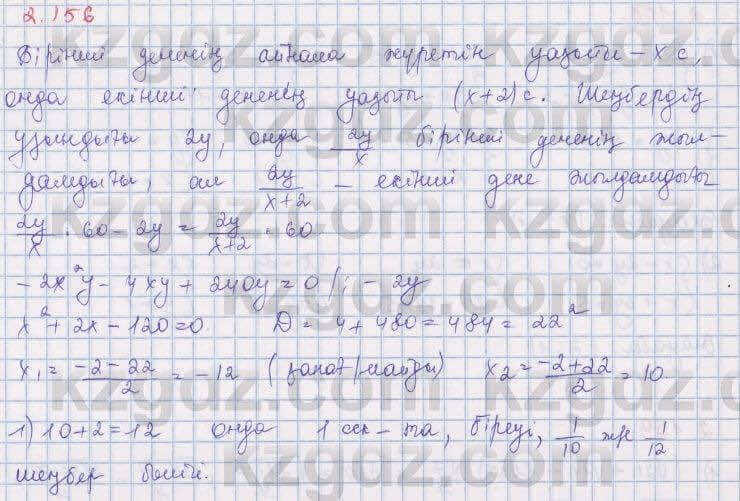 2.156
Бірінші дененің айнала жүретін уақыты - x с,
онда екінші дененің уақыты (x+2) с. Шеңбердің
ұзындығы 2y, онда 2y/x бірінші дененің жыл-
дамдығы, ал 2y/x+2 - екінші дене жылдамдығы
2y/x · 60 - 2y = 2y/x+2 · 60
-2x²y - 4xy + 240y = 0 |: -2y
x² + 2x - 120 = 0 D = 4 + 480 = 484 = 22²
x₁ = -2-22/2 = -12 (қанағ/майды) x₂ = -2+22/2 = 10
1) 10+2=12 онда 1 сек-та, біреуі, 1/10 және 1/12
шеңбер бөлігі.
kzgdz.com